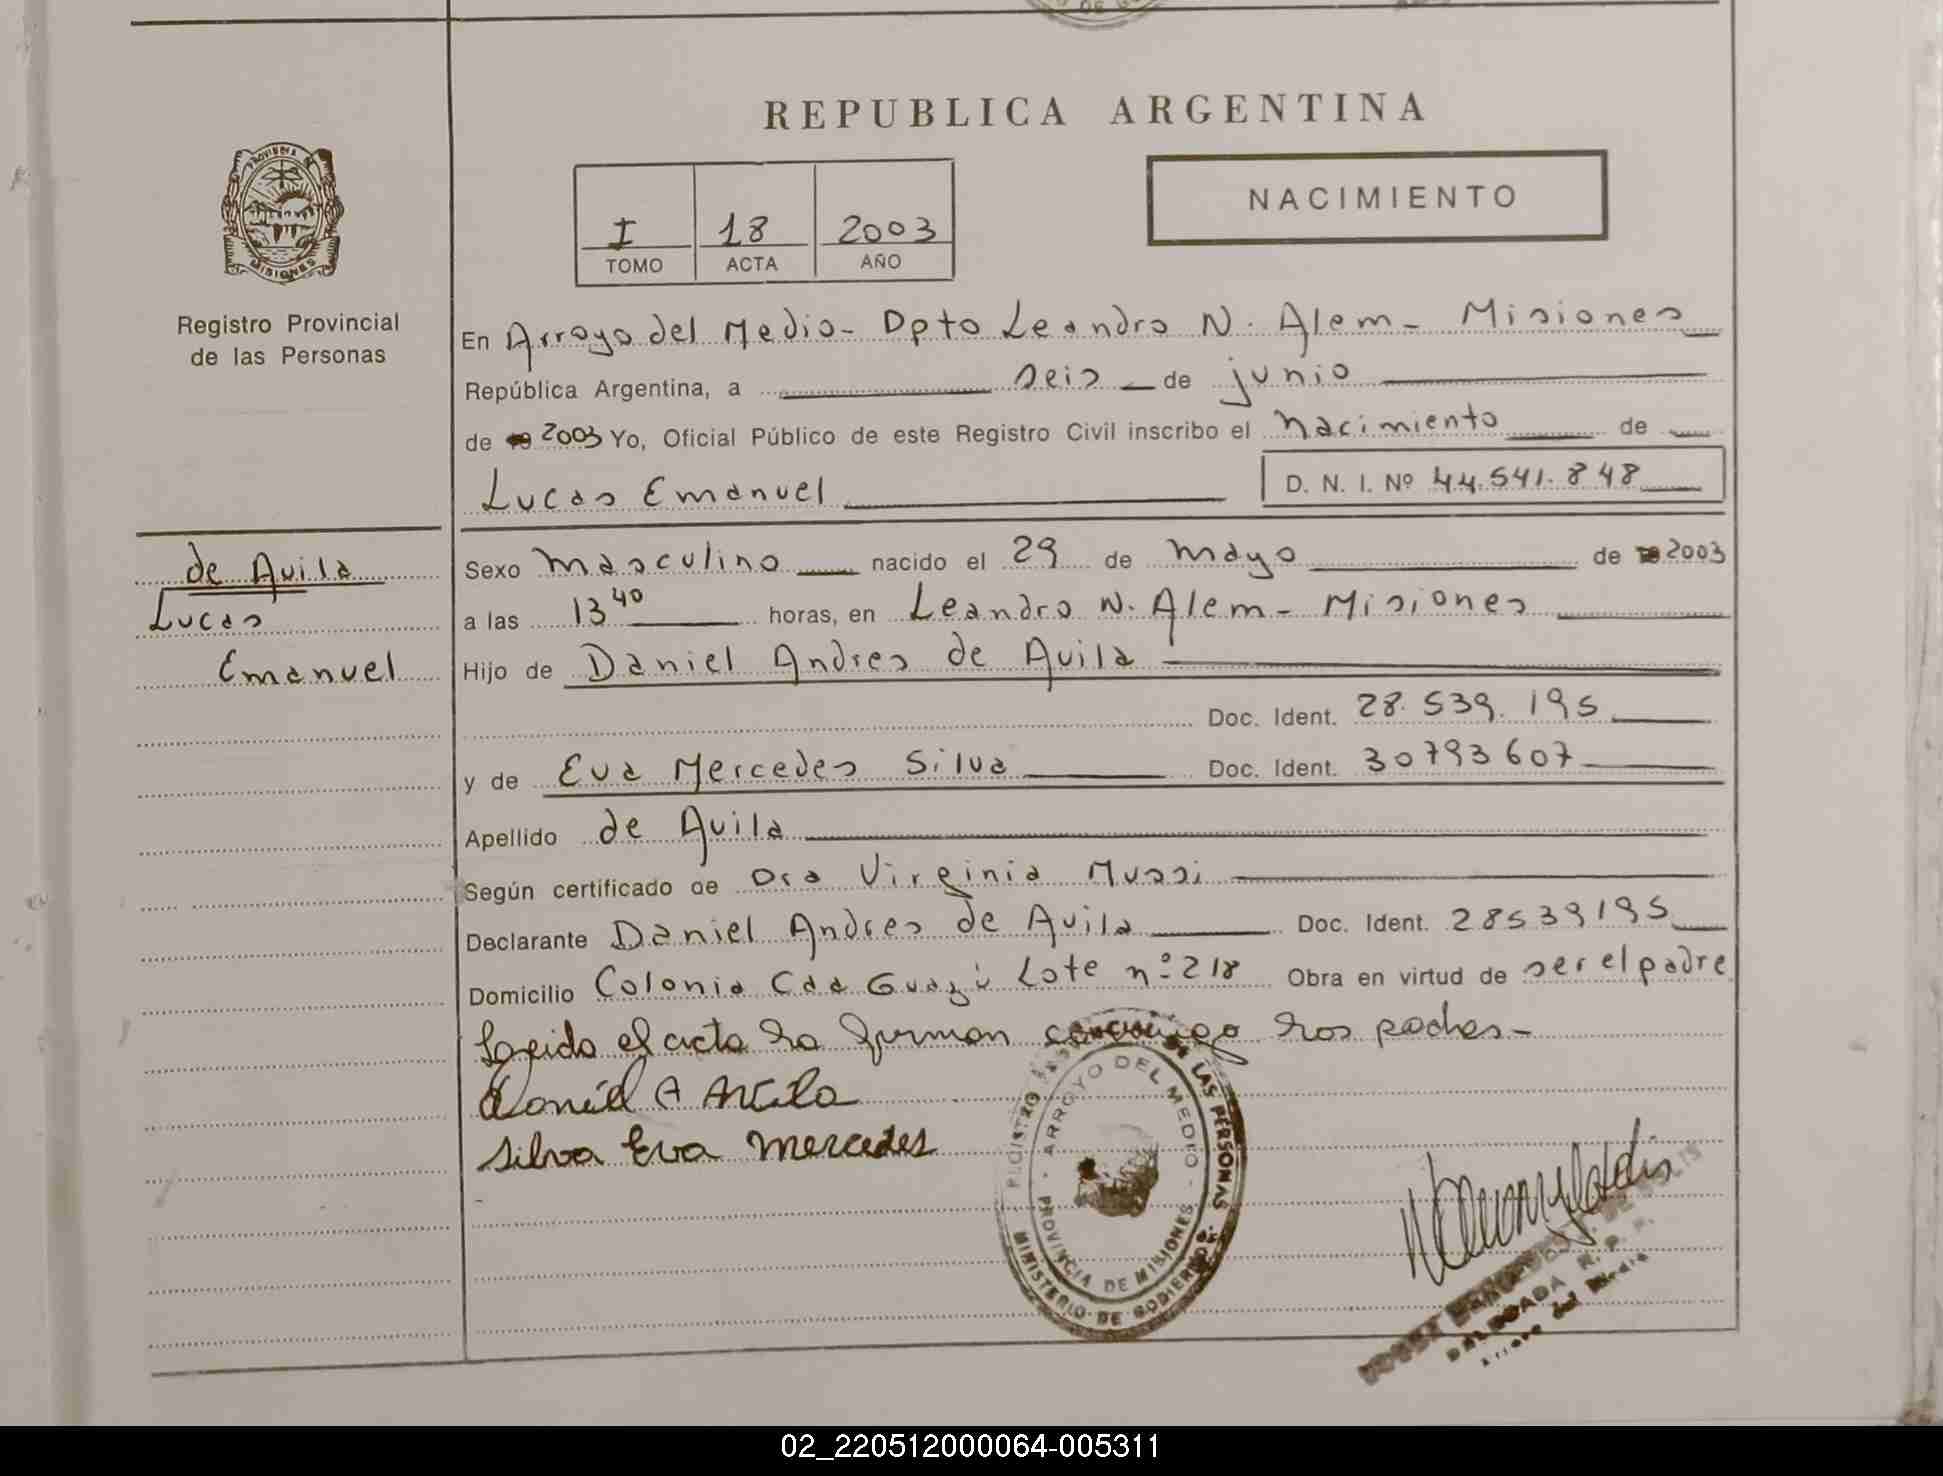 REPUBLICA ARGENTINA
PROVINCIA DE MISIONES
Registro Provincial
de las Personas
I 18 2003
TOMO ACTA AÑO
NACIMIENTO
En Arroyo del Medio - Dpto Leandro N. Alem - Misiones
República Argentina, a seis de junio
de 2003 Yo, Oficial Público de este Registro Civil inscribo el nacimiento de
Lucas Emanuel D. N. I. Nº 44.541.848
de Avila
Lucas
Emanuel
Sexo masculino nacido el 29 de mayo de 2003
a las 13 40 horas, en Leandro N. Alem - Misiones
Hijo de Daniel Andres de Avila
Doc. Ident. 28.539.195
y de Eva Mercedes Silva Doc. Ident. 30793607
Apellido de Avila
Según certificado de Dra Virginia Mussi
Declarante Daniel Andres de Avila Doc. Ident. 28539195
Domicilio Colonia Caa Guazú Lote nº 218 Obra en virtud de ser el padre
Leida el acta la firman conmigo los padres -
Daniel A Avila
Silva Eva Mercedes
REGISTRO DE LAS PERSONAS
ARROYO DEL MEDIO
PROVINCIA DE MISIONES
MINISTERIO DE GOBIERNO
DELEGADA R. P. P.
Arroyo del Medio
02_220512000064-005311